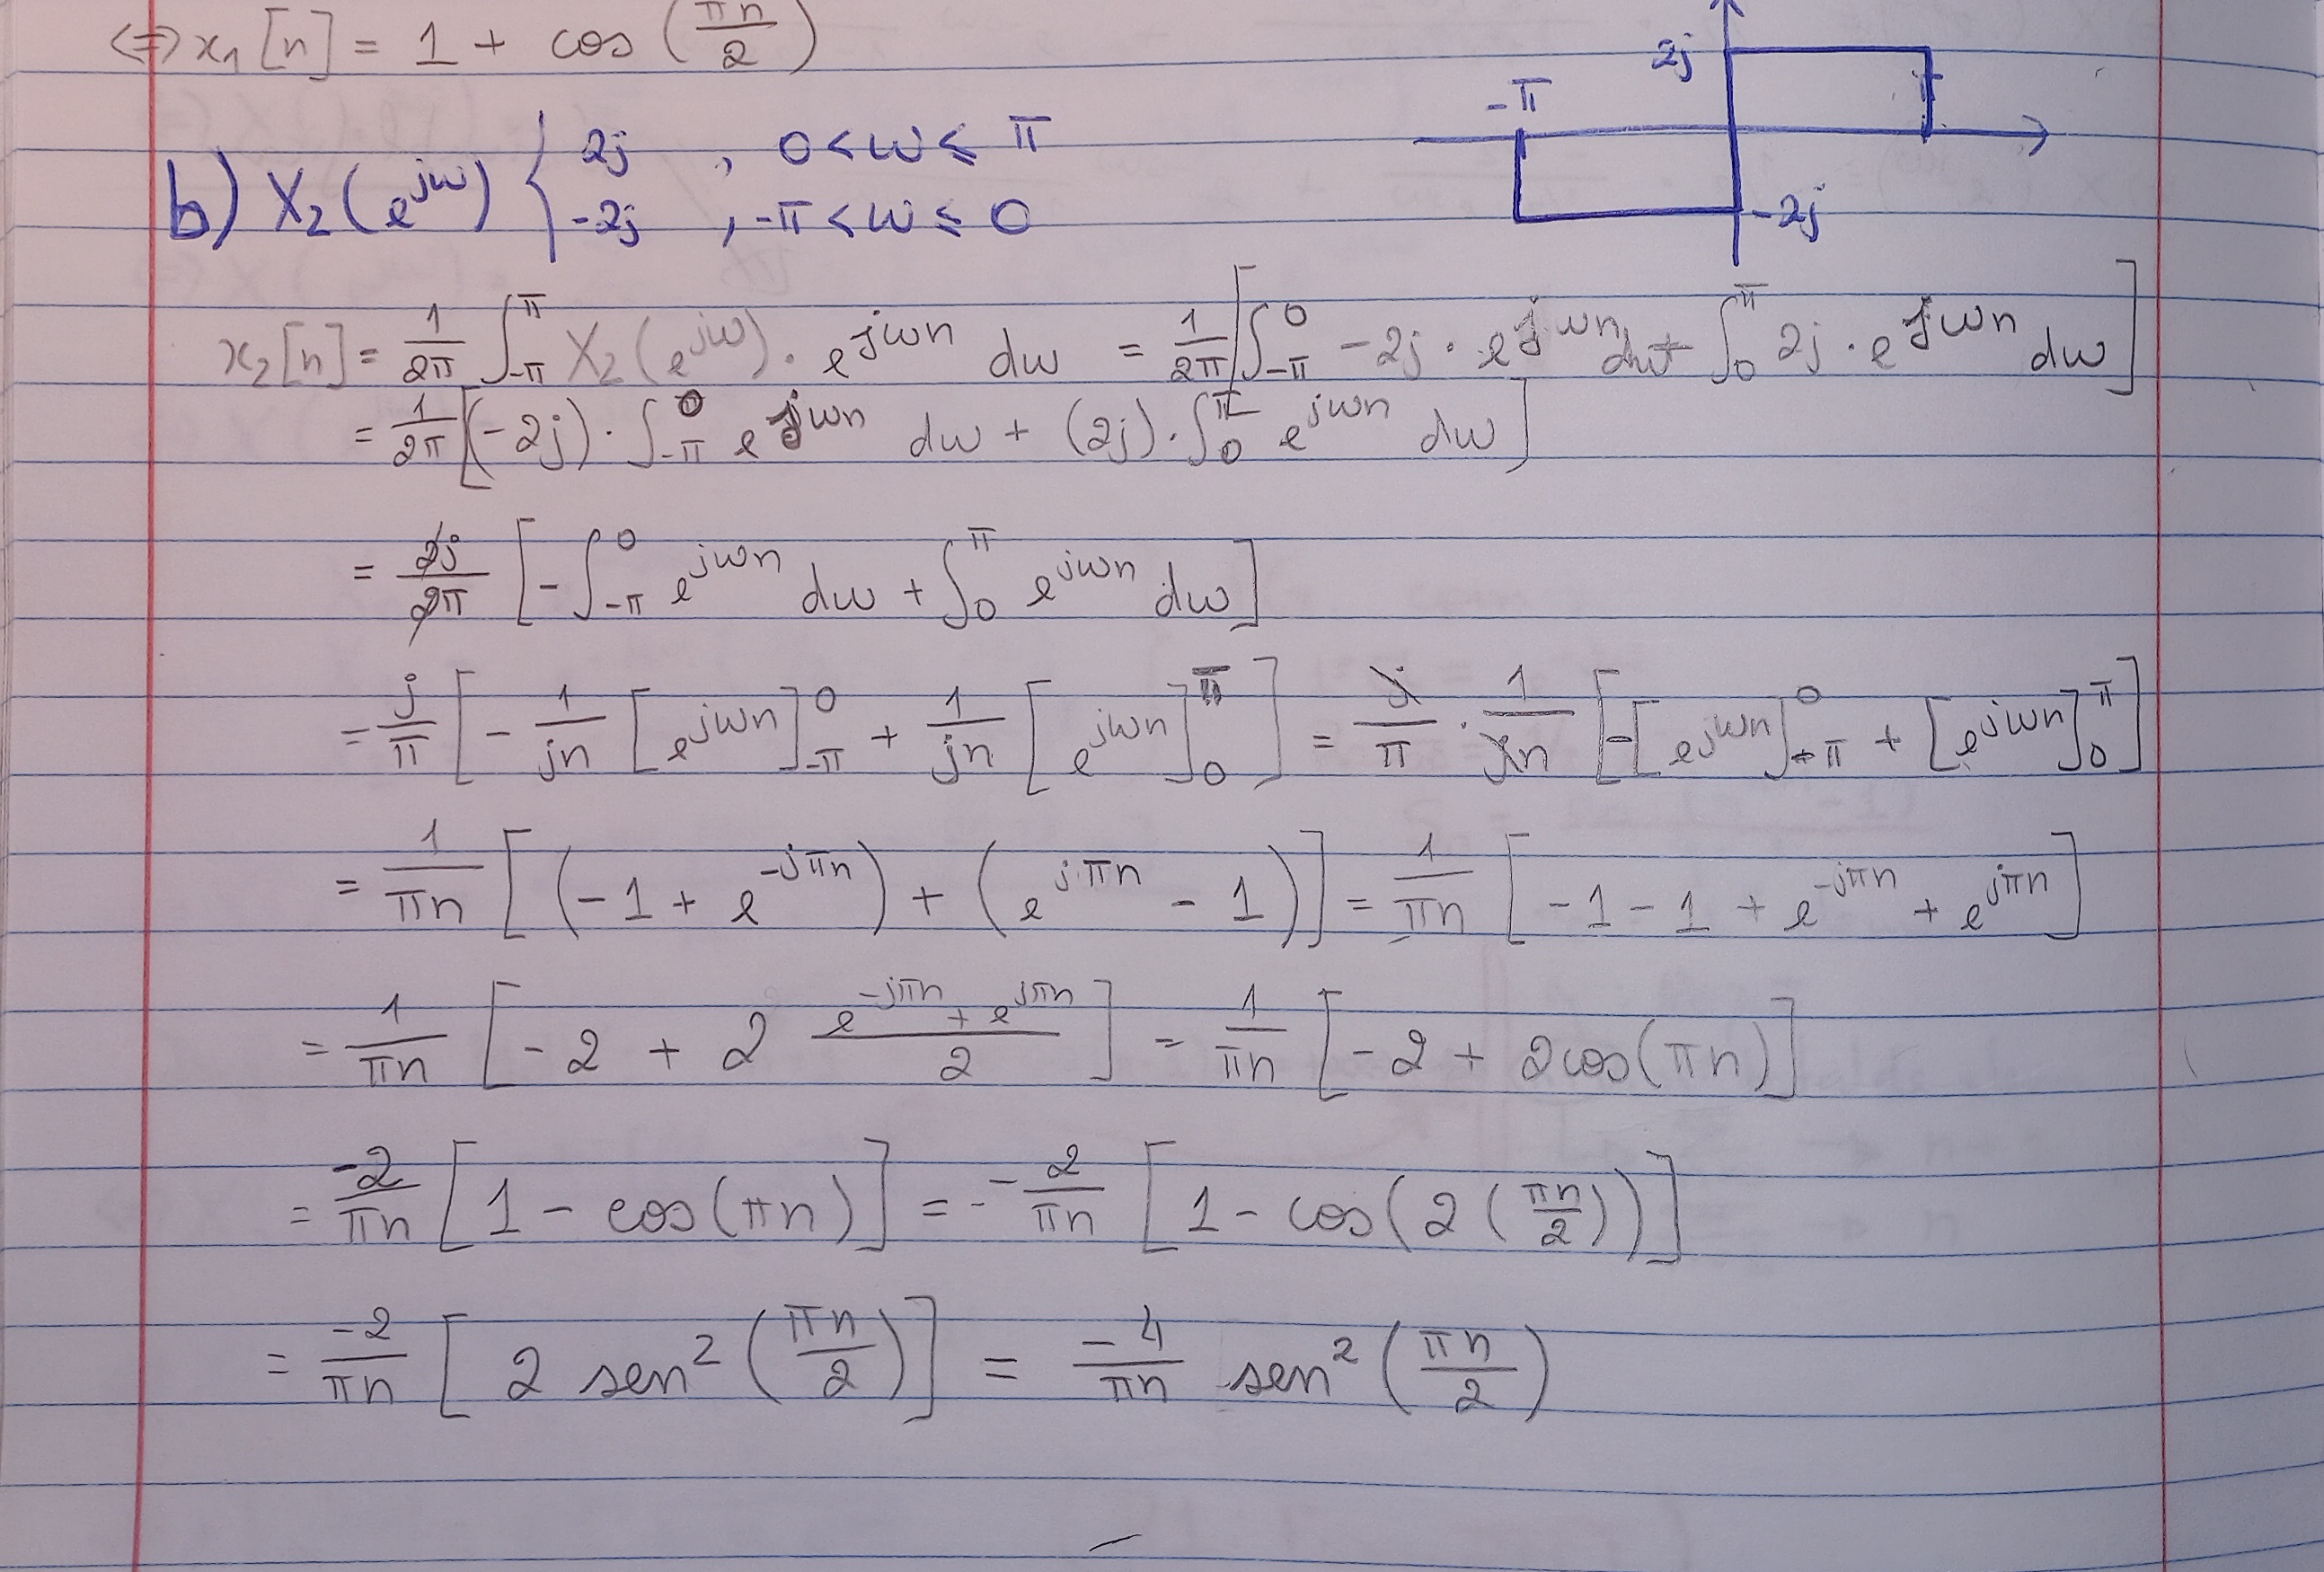 <=> x₁[n] = 1 + cos(πn/2)
2j
-π
π
-2j
b) X₂(e^{jω}) { 2j , 0 < ω ≤ π
-2j , -π < ω ≤ 0
x₂[n] = 1/2π ∫_{-π}^{π} X₂(e^{jω}) · e^{jωn} dω = 1/2π [∫_{-π}^{0} -2j · e^{jωn} dω + ∫_{0}^{π} 2j · e^{jωn} dω]
= 1/2π [(-2j) · ∫_{-π}^{0} e^{jωn} dω + (2j) · ∫_{0}^{π} e^{jωn} dω]
= 2j/2π [-∫_{-π}^{0} e^{jωn} dω + ∫_{0}^{π} e^{jωn} dω]
= j/π [-1/jn [e^{jωn}]_{-π}^{0} + 1/jn [e^{jωn}]_{0}^{π}] = j/π · 1/jn [-[e^{jωn}]_{-π}^{0} + [e^{jωn}]_{0}^{π}]
= 1/πn [(-1 + e^{-jπn}) + (e^{jπn} - 1)] = 1/πn [-1 - 1 + e^{-jπn} + e^{jπn}]
= 1/πn [-2 + 2 (e^{-jπn} + e^{jπn})/2] = 1/πn [-2 + 2cos(πn)]
= -2/πn [1 - cos(πn)] = -2/πn [1 - cos(2(πn/2))]
= -2/πn [2 sen²(πn/2)] = -4/πn sen²(πn/2)